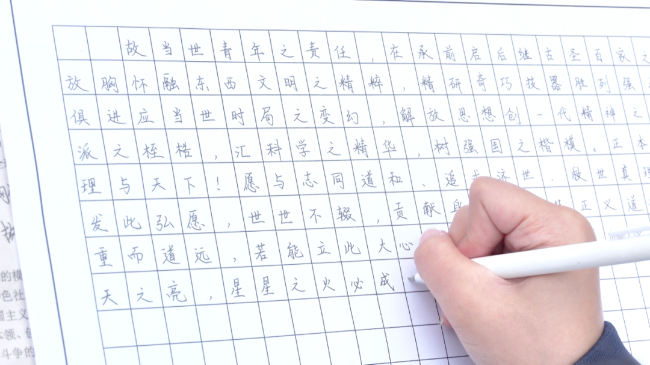 故当世青年之责任，在承前启后继古圣百家之
放胸怀融东西文明之精粹，精研奇巧技器胜列强
俱进应当世时局之变幻，解放思想创一代精神之
派之桎梏，汇科学之精华，树强国之楷模。正本
理与天下！愿与志同道和、追求济世、救世真理
发此弘愿，世世不辍，贡献 正义道
重而道远，若能立此大心
天之亮，星星之火必成